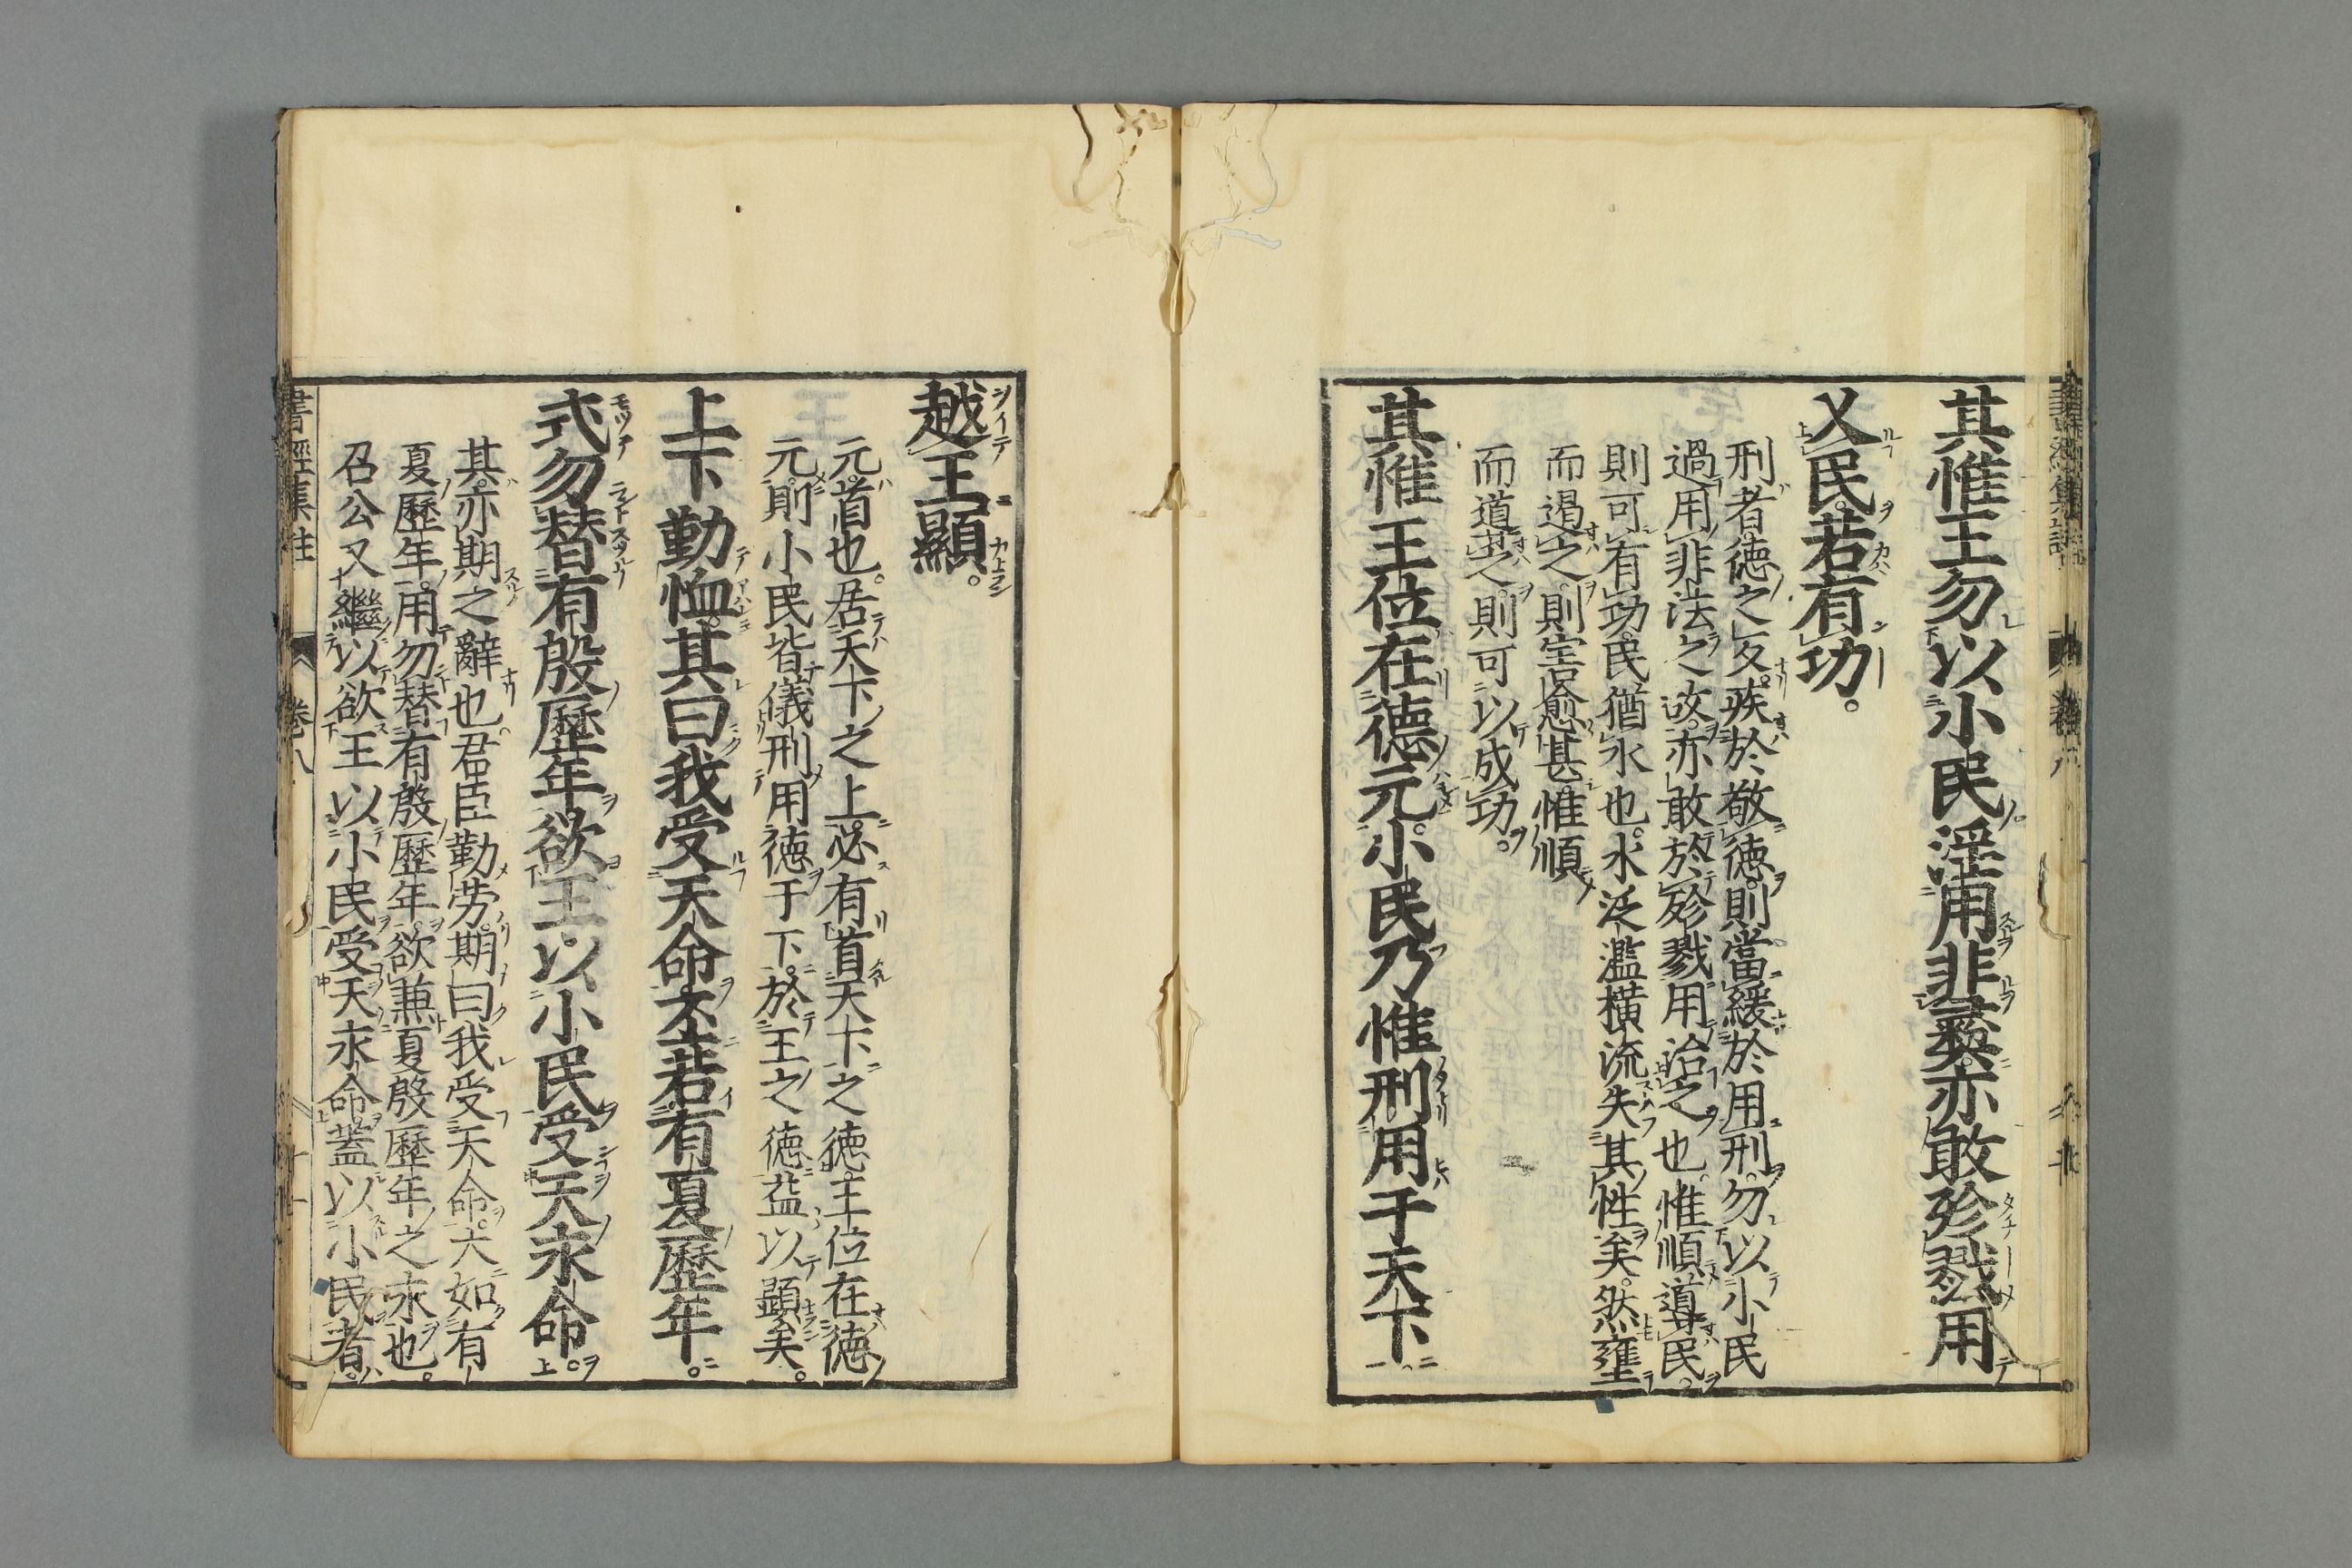 其惟王勿以小民淫用非彝亦敢殄戮用
乂民若有功。
刑者徳之反。疾於敬徳。則當緩於用刑。勿以小民
過用非法之故。亦敢於殄戮用治之也。惟順導民。
則可有功。民猶水也。水泛濫橫流失其性矣。然壅
而遏之。則害愈甚。惟順
而道之。則可以成功。
其惟王位在德元。小民乃惟刑用于天下。
越王顯。
元。首也。居天下之上。必有首天下之徳。王位在徳
元。則小民皆儀刑用徳于下。於王之徳益以顯矣。
上下勤恤。其曰我受天命。丕若有夏歷年。
式勿替有殷歷年。欲王以小民受天永命。
其。亦期之辭也。君臣勤労。期曰我受天命。大如有
夏歷年。用勿替有殷歷年。欲兼夏殷歷年之永也。
召公又繼以欲王以小民受天永命。蓋以小民者。
書經集註 卷八